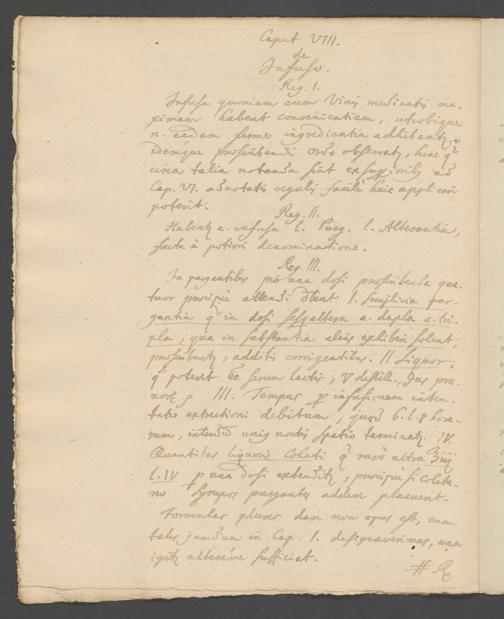 Caput VIII.
de
Infuso.
Reg. I.
Infusa quoniam cum Vinis medicatis ma-
ximam habent convenientiam, utrobique
n. eadem ferme ingredientia adhibent
idemque praescribendi ordo observat, hinc q
circa talia notanda sint ex superioribus ad
Cap. VI. adnotatis regulis facile huic applicari
poterit.
Reg. II.
Habent a. infusa l. Purg. l. Alterantia,
facta à potiori denominatione.
Reg. III.
In purgantibus pro una dosi praescribenda qua-
tuor praecipue attendi debent I. simplicia pur-
gantia q in dosi sesquialtera a. dupla a. tri-
pla, qua in substantia alias exhiberi solent,
praescribunt, additis corrigentibus. II Liquor,
q poterit esse serum lactis, V destill., Jus pru-
nor. III. Tempus infusionem inten-
tatae extractioni debitum, quod 6. l. 8 hora-
rum, unius noctis spatio terminat. IV.
Quantitas liquoris Colati q raro ultra ℥iij
l. IV p una dosi extendit, praecipue si colatu-
rae syrupos purgantes addere placuerit.
Formulas plures dare non opus est, cum
tales jamdum in Cap. I. designaverimus, una
igit alterave sufficiat.
# ℞